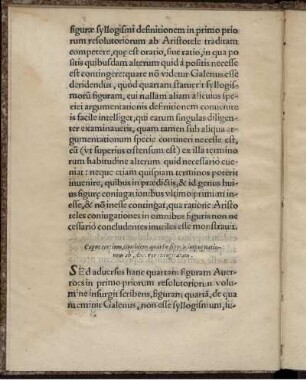 figuræ syllogismi definitionem in primo prio
rum resolutoriorum ab Aristotele traditam
competere, quę est oratio, siue ratio, in qua po
sitis quibusdam alterum quid á positis necesse
est contingere: quare nō videtur Galenus esse
deridendus, quod quartam statuerit syllogis-
morū figuram, cui nullam aliam alicuius spe-
ciei argumentationis definitionem conuenire
is facile intelliget, qui earum singulas diligen-
ter examinauerit, quam tamen sub aliqua ar-
gumentationum specie contineri necesse est,
cū (vt superius ostensum est) ex illa terminо
rum habitudine alterum quid necessario eue-
niat: neque etiam quispiam terminos poterit
inuenire, quibus in prædictis, & id genus huius
figurę coniugationibus vltimo primum ines-
se, & nō inesse contingat, qua ratione Aristo
teles coniugationes in omnibus figuris non ne
cessario concludentes inutiles esse monstrauit.
SEd aduersus hanc quartam figuram Auer
roes in primo priorum resolutoriorum volu
mine insurgit scribens, figuram quartā, de qua
meminit Galenus, non esse syllogismum, su-